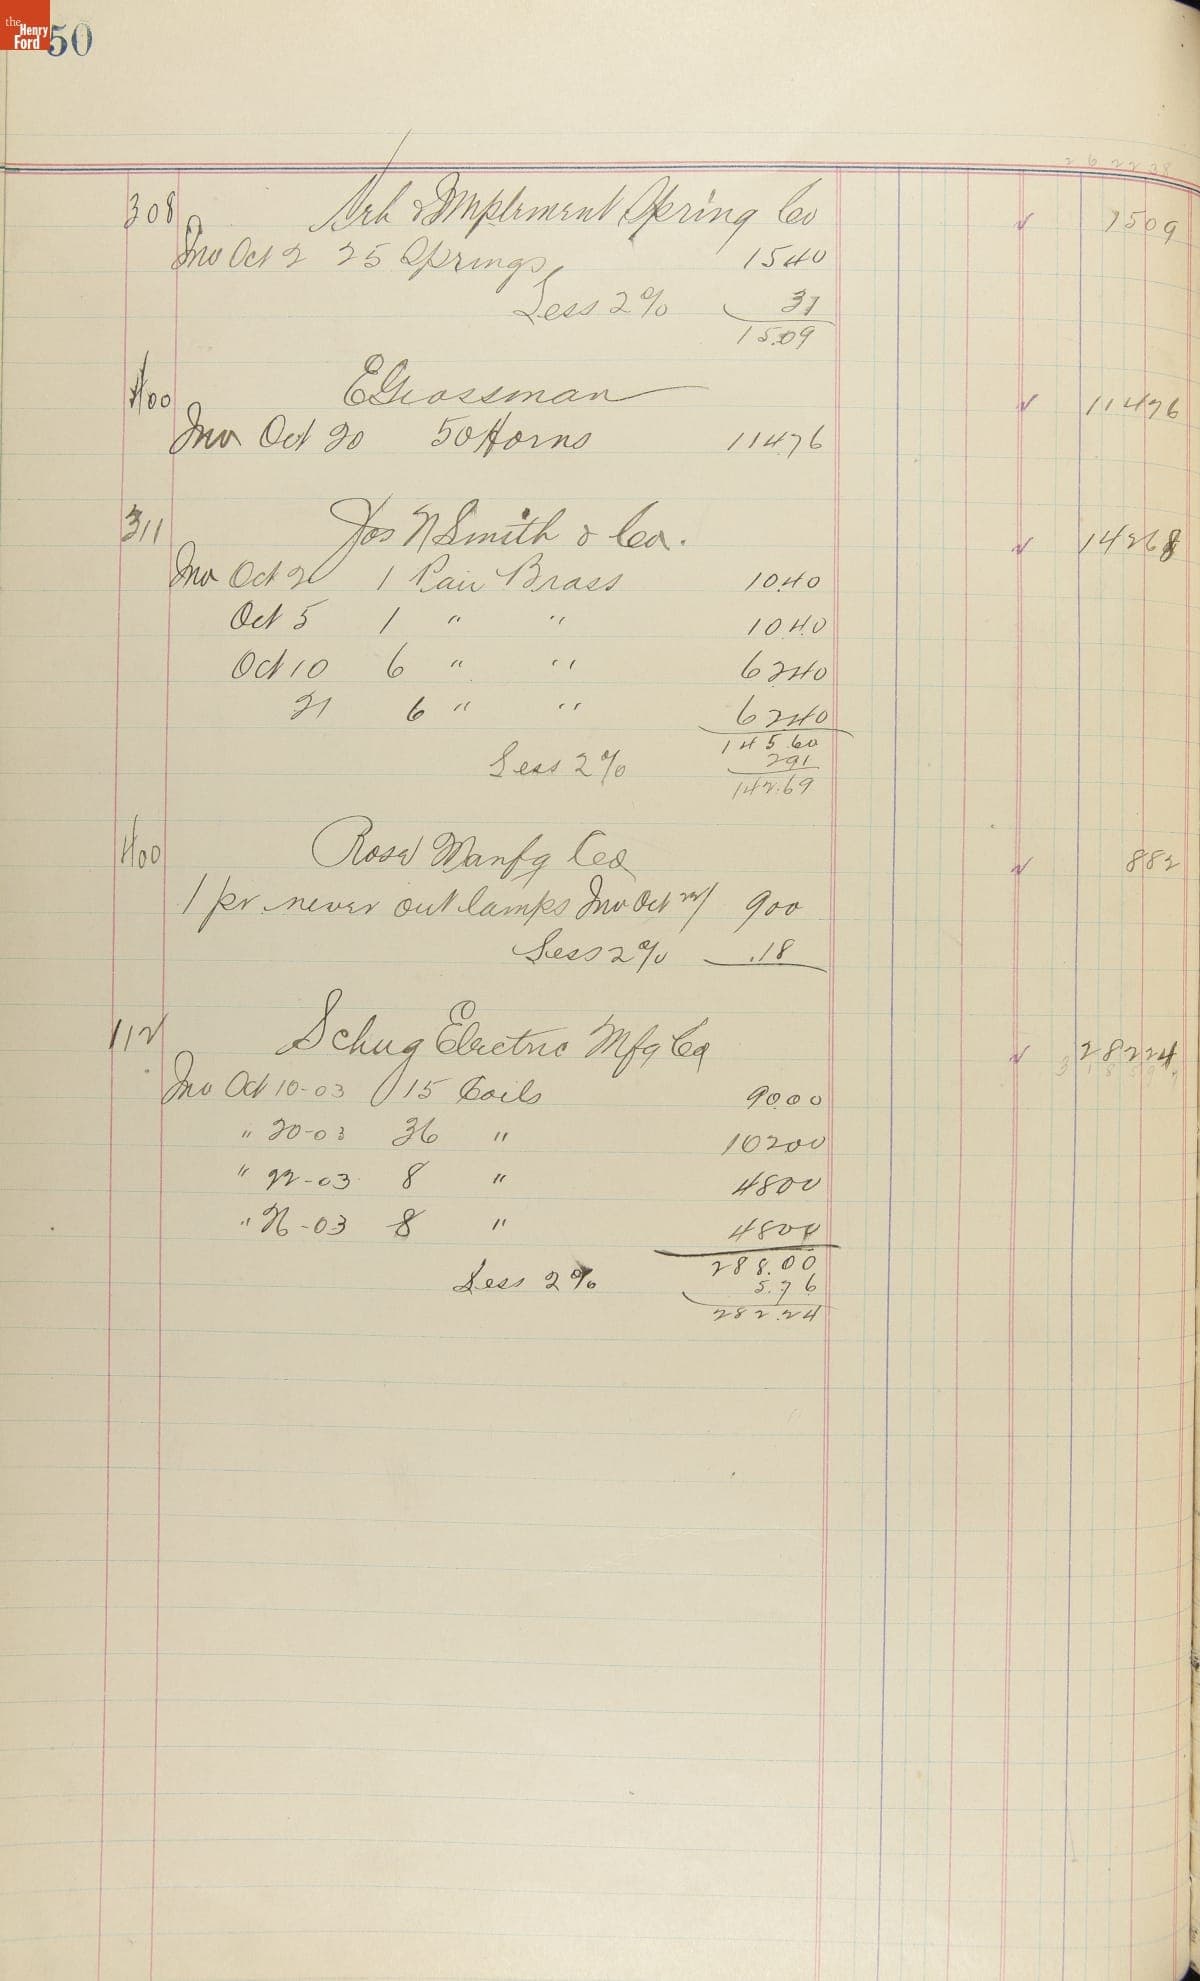 the Henry Ford
50
2 6 2 2 38
308 Veh & Implement Spring Co ✓ 1509
Inv Oct 2 25 Springs 1540
Less 2% 31
15.09
400 E Grossman ✓ 11476
Inv Oct 20 50 Horns 11476
311 Jos N Smith & Co. ✓ 14268
Inv Oct 2 1 Pair Brass 1040
Oct 5 1 " " 1040
Oct 10 6 " " 6240
21 6 " " 6240
145.60
Less 2% 291
142.69
400 Rose Manfg Co ✓ 882
1 pr never out lamps Inv Oct 900
Less 2% .18
112 Schug Electric Mfg Co ✓ 28224
Inv Oct 10-03 15 Coils 9000
" 20-03 36 " 10200
" 22-03 8 " 4800
" 26-03 8 " 4800
288.00
Less 2% 5.76
282.24